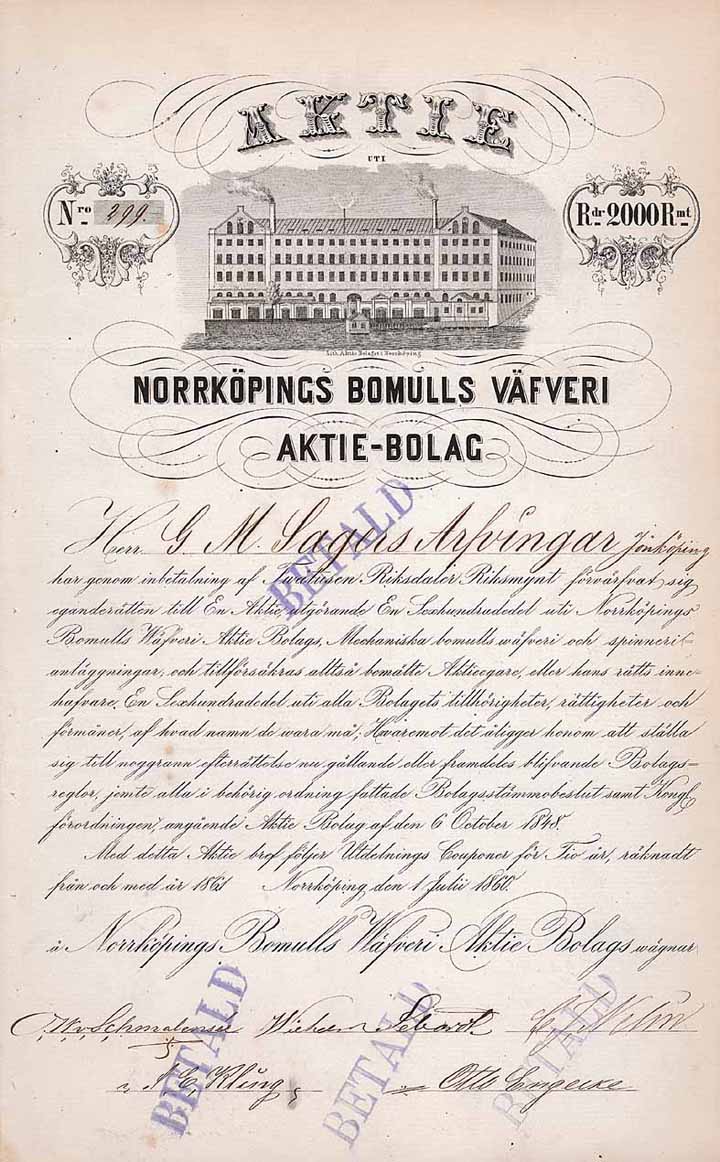 AKTIE
UTI
Nro 299.
Rdr 2000 Rmt
Lith. Aktie Bolaget i Norrköping
NORRKÖPINGS BOMULLS VÄFVERI
AKTIE-BOLAG
Herr G. M. Sagers Arfvingar Jönköping
har genom inbetalning af Tvåtusen Riksdaler Riksmynt förvärfvat sig
eganderätten till En Aktie, utgörande En Sexhundradedel uti Norrköpings
Bomulls Wäfveri Aktie Bolags, Mechaniska bomulls wäfveri och spinneri-
anläggningar, och tillförsäkras alltså bemälte Aktieegare, eller hans rätts inne-
hafvare, En Sexhundradedel uti alla Bolagets tillhörigheter, rättigheter och
förmåner, af hvad namn de wara må; Hwaremot det åligger honom att ställa
sig till noggrann efterrättelse nu gällande eller framdeles blifvande Bolags-
reglor, jemte alla i behörig ordning fattade Bolagsstämmobeslut samt Kongl.
förordningen, angående Aktie Bolag af den 6 October 1848.
Med detta Aktie bref följer Utdelnings Couponer för Tio år, räknadt
från och med år 1861 Norrköping den 1 Julii 1860.
å Norrköpings Bomulls Wäfveri Aktie Bolags wägnar
BETALD
BETALD
BETALD
BETALD
v Schmalensée
Otto Engecke